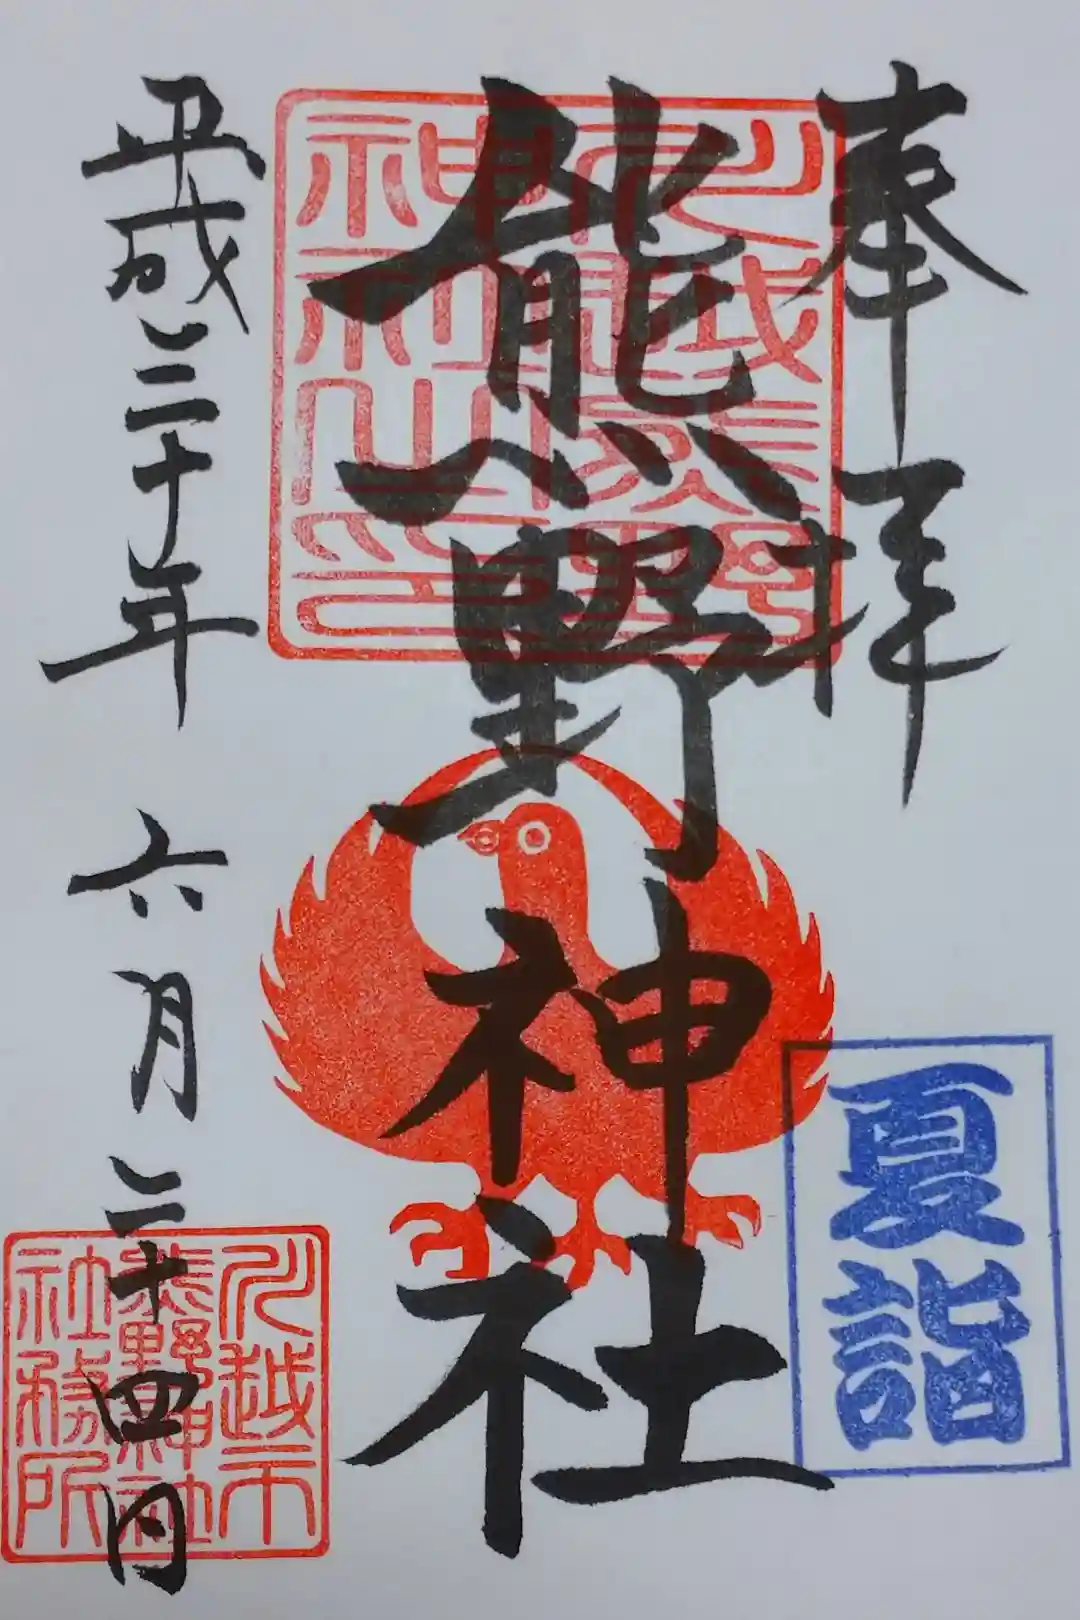 奉拝
川越熊野
神社印
熊野神社
夏詣
平成三十年 六月 二十四日
川越市
熊野神社
社務所